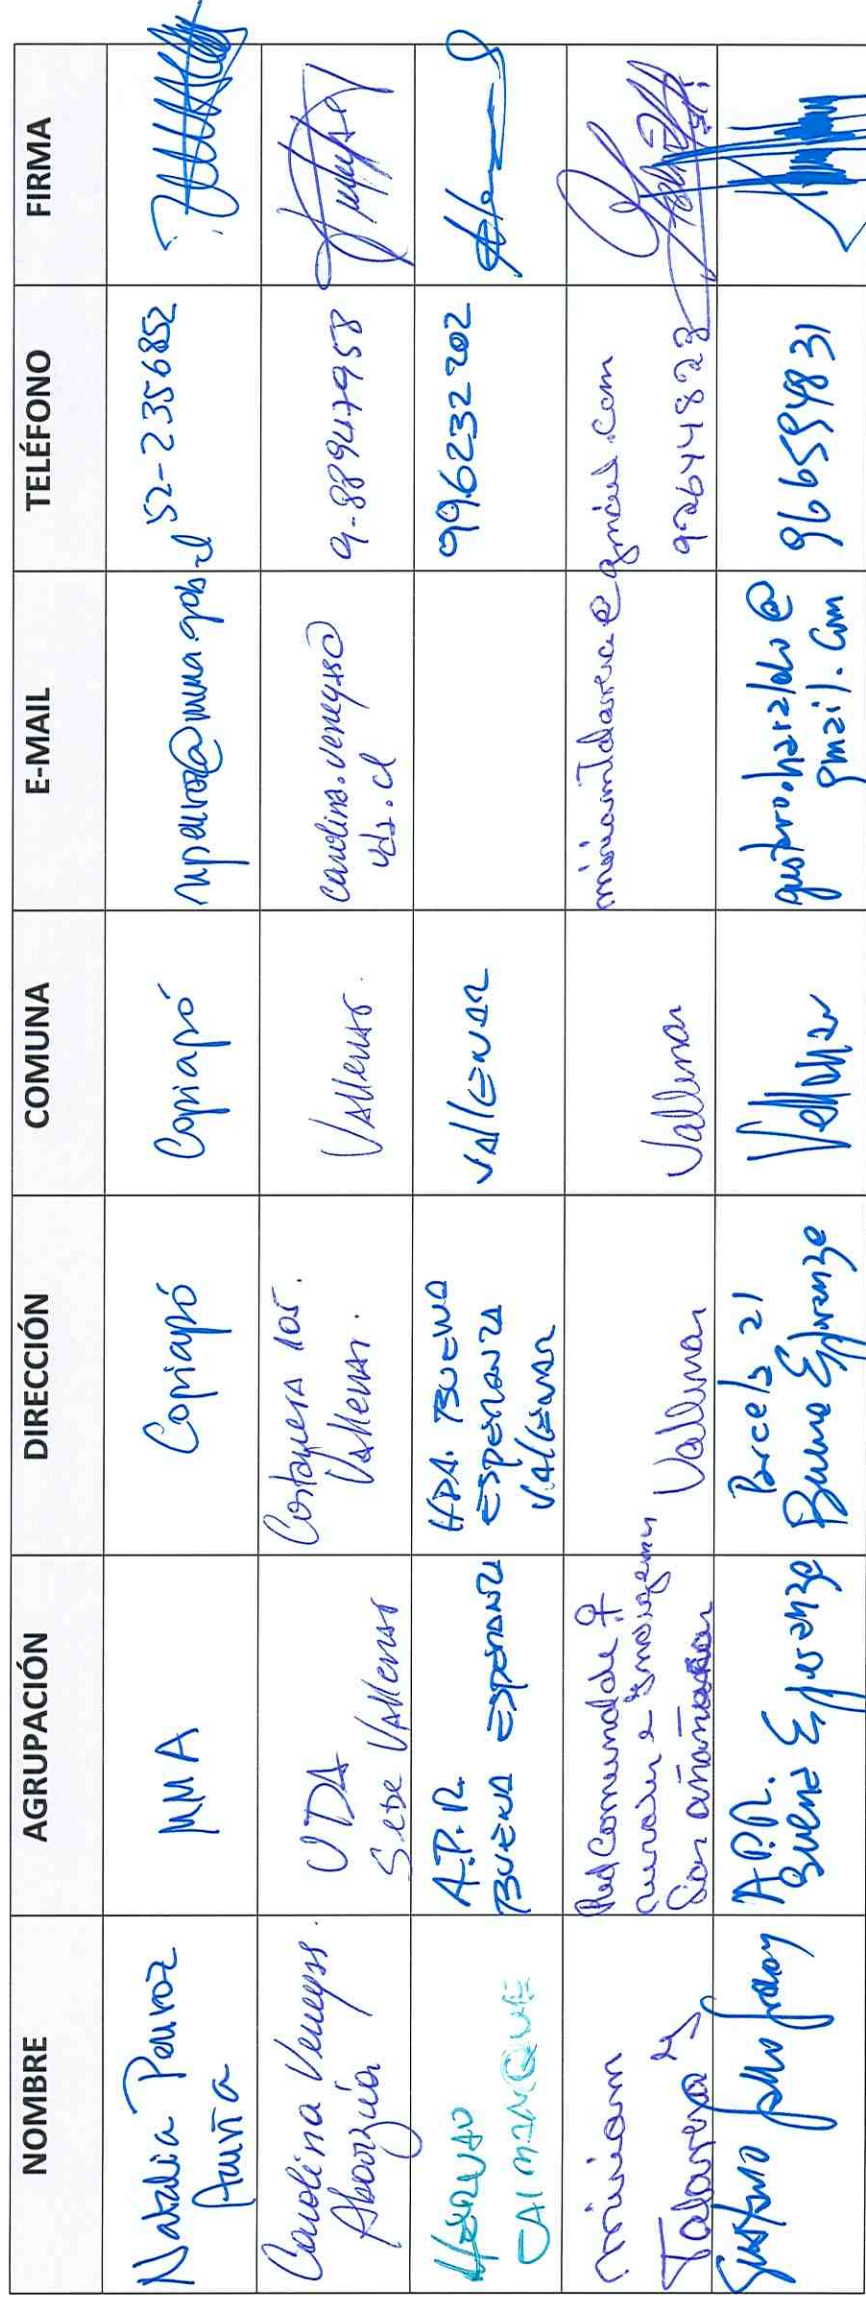 NOMBRE AGRUPACIÓN DIRECCIÓN COMUNA E-MAIL TELÉFONO FIRMA
Natalia Penroz
Acuña
MMA
Copiapó
Copiapó
52-2356852
Carolina Venegas
UDA
Sede Vallenar
Costanera 105.
Vallenar.
Vallenar.
carolina.venegas@
uda.cl
9-88947958
CAIMANQUE
A.P.R.
BUENA ESPERANZA
HDA. BUENA
ESPERANZA
VALLENAR
VALLENAR
996232202
Miriam
Talavera
Red Comunal de ♀
rurales e Indígenas
Vallenar
Vallenar
@gmail.com
92644823
Gustavo
A.P.R.
Buena Esperanza
Parcela 21
Buena Esperanza
Vallenar
gustavo.haraldo@
gmail.com
966594831